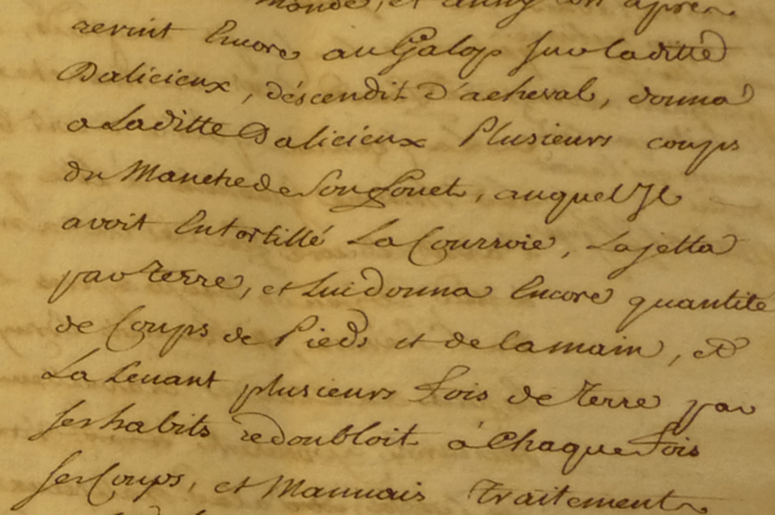 monde, et
revint Encore au Galop sur laditte
Dalicieux, déscendit d'acheval, donna
a Laditte Dalicieux Plusieurs coups
du Manche de son fouet, auquel Il
avoit Entortillé La Courroie, La jetta
par terre, et Lui donna Encore quantité
de Coups de Pieds et de la main, et
La Levant plusieurs fois de terre par
ses habits redoubloit à Chaque fois
ses Coups, et Mauvais traitements